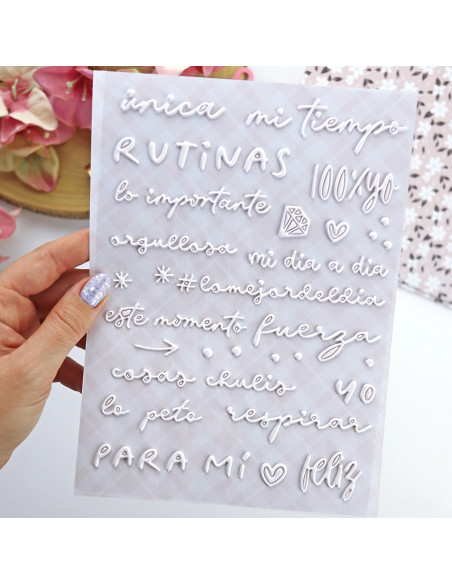 única mi tiempo
RUTiNAS 100%yo
lo importante
orgullosa mi dia a dia
#lomejordeldia
este momento fuerza
cosas chulis yo
lo peto respirar
PARA MÍ feliz